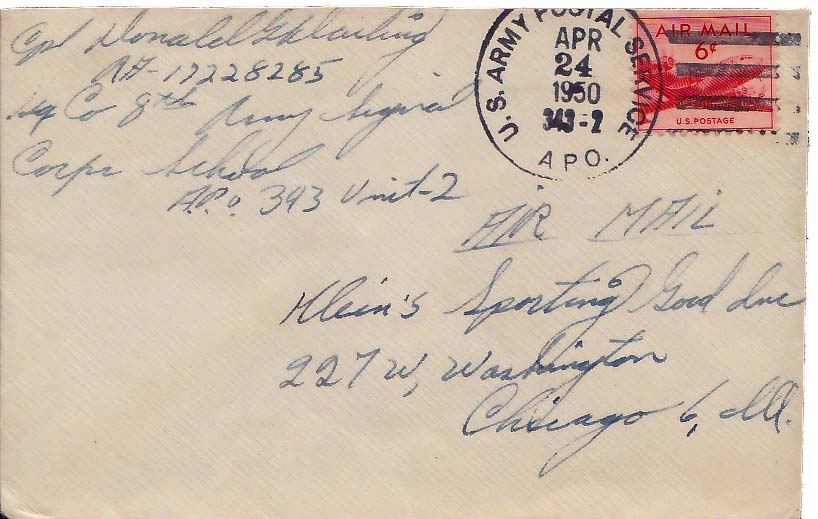 Cpl Donald G Darling
RA-17228285
Hq Co 8th Army Signal
Corps School
A.P.o. 343 Unit-2
U.S. ARMY POSTAL SERVICE
APR
24
1950
343-2
A P O.
AIR MAIL
6¢
U.S. POSTAGE
AIR MAIL
Klein's Sporting Good Inc
227 W, Washington
Chicago 6, Ill.